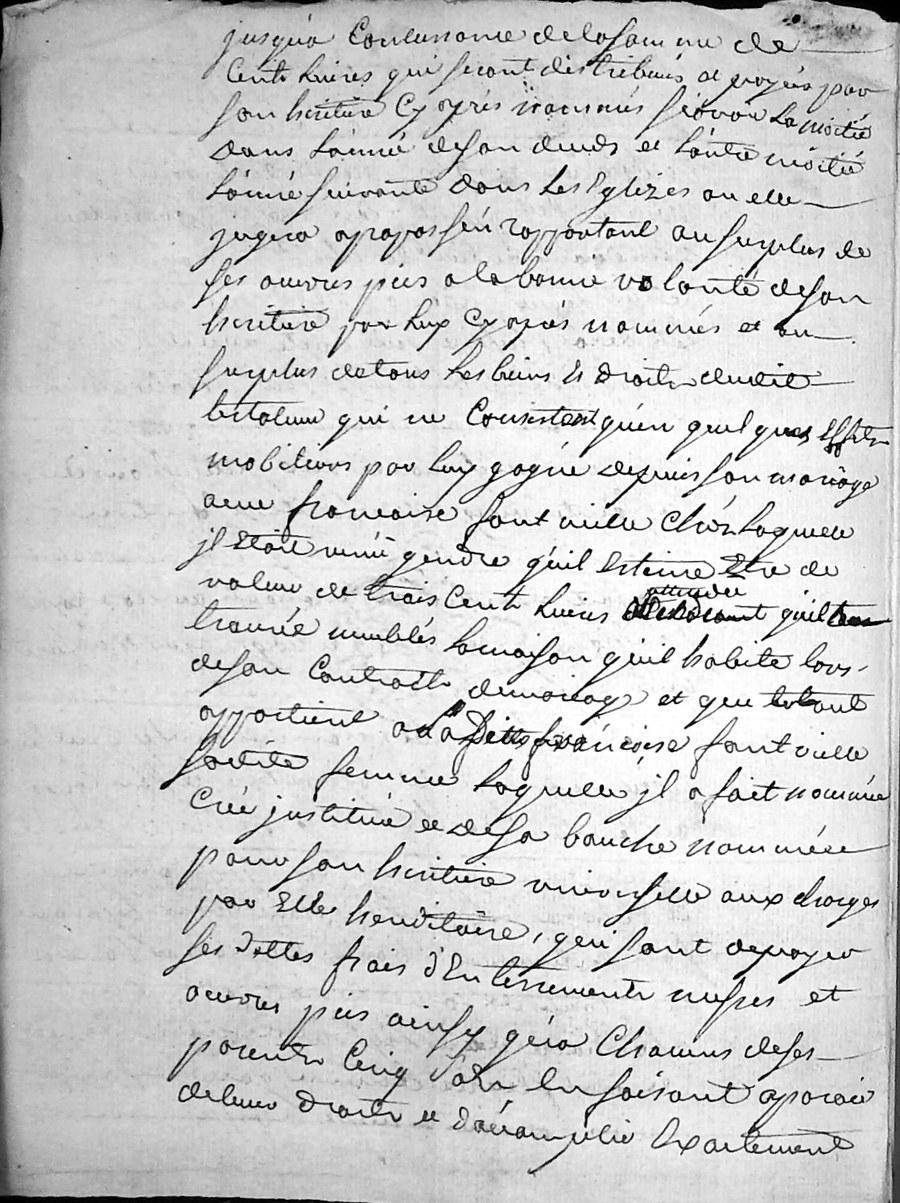 jusqu'a Concurrance de la somme de
Cents Livres qui seront distribués et payés par
son heritiere Cy aprés nommés sçavoir La moitié
Dans L'année de son deceds et L'autre moitié
L'année suivante Dans Les Eglizes ou elle
jugera apropos s'en rapportant au surplus de
ses œuvres pies a la bonne volonté de son
heritiere par Luy Cy aprés nommés et au
surplus de tous Les biens et Droits dudit
testateur qui ne Consistent qu'en quelques Effets
mobiliers par Luy gagné depuis son mariage
avec francoise fontvieille Chéz Laquelle
jl Etoit venu gendre qu'il Estime Etre de
valeur de trois Cents Livres attendu qu'il
trouvé meublés La maison qu'il habite Lors
de son Contract de mariage et que le tout
appartient a La Ditte francoise fontvieille
sadite femme Laquelle jl a fait nommée
Crée jnstitué et de sa bouche nommée
pour son heritiere universelle aux charges
par Elle hereditaire, qui sont de payer
ses dettes frais d'Enterrements messes et
œuvres pies ainsy qu'a Chacuns de ses
parents Cinq sols En faisant aparoir
de leurs Droits et d'accomplir Exactement